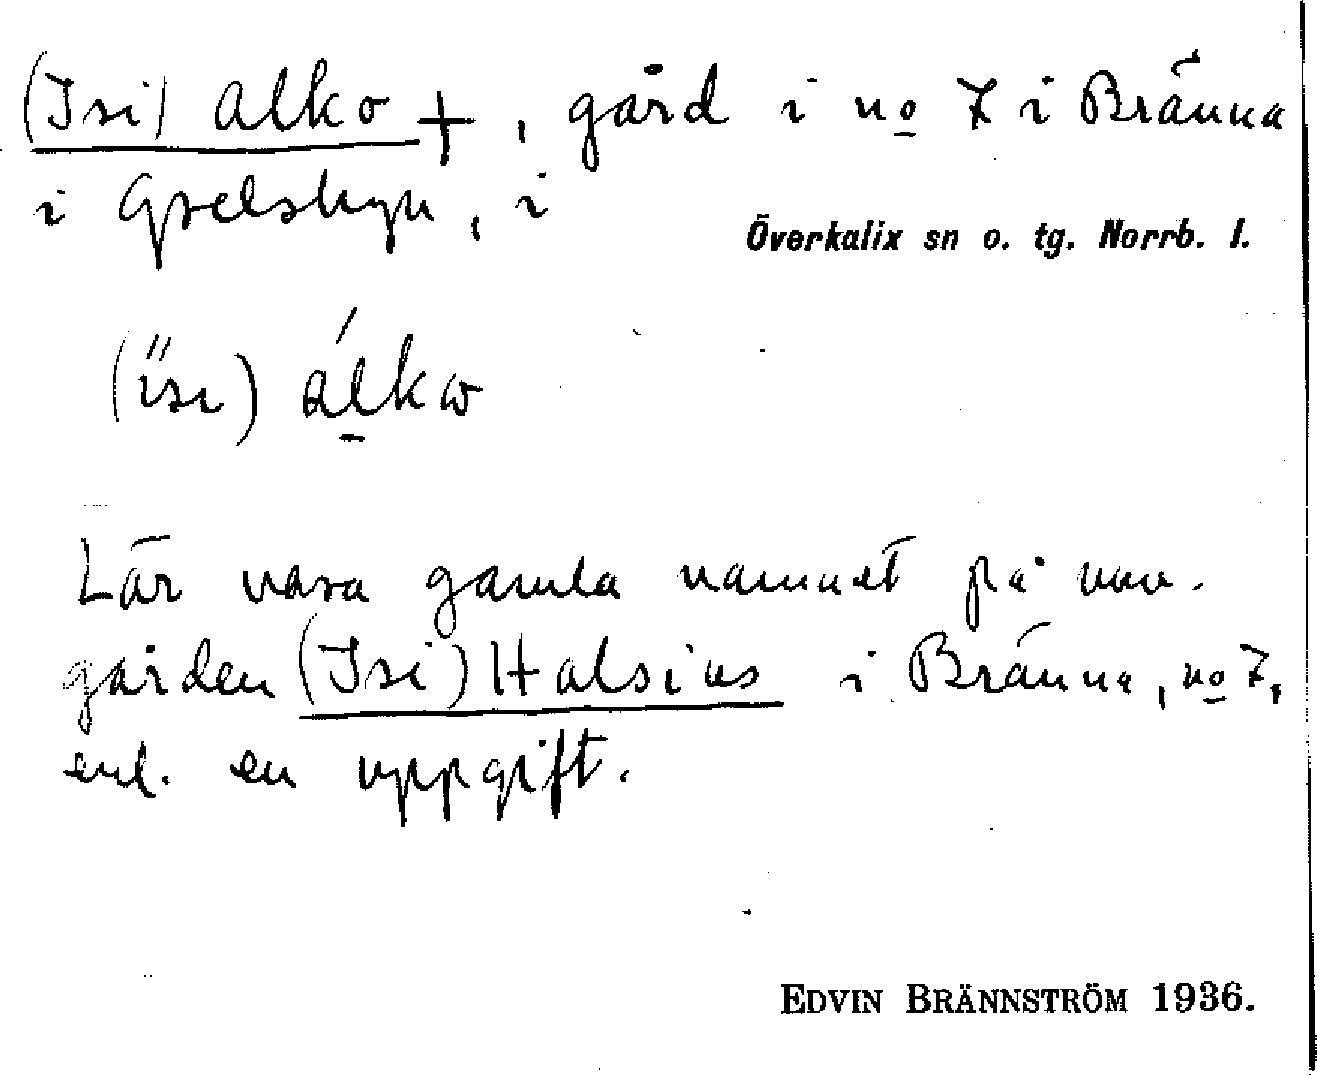 (Isi) alko +, gård i no 7 i Bränna
i Grelsbyn, i
Överkalix sn o. tg. Norrb. l.
(isi) álkω
Lär vara gamla namnet på nuv.
gården (Isi) Halsius i Bränna, no 7,
enl. en uppgift.
EDVIN BRÄNNSTRÖM 1936.